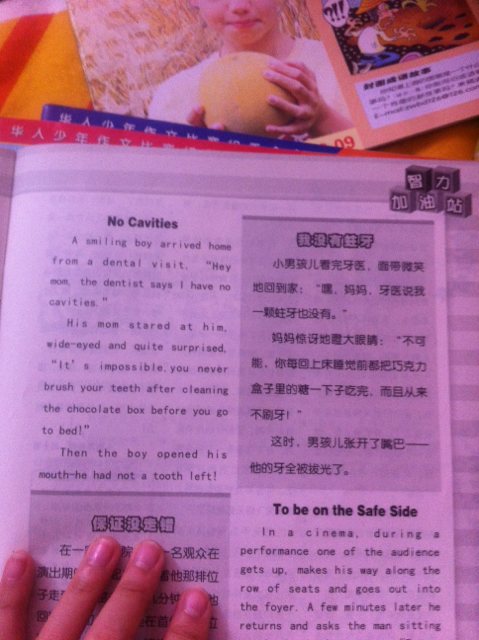 ?!!
封面成语故事
E-mail:zwbd126@126.com
09
华人少年作文比赛
华人少年作文比赛
智力
加油站
No Cavities
A smiling boy arrived home
from a dental visit. “Hey
mom, the dentist says I have no
cavities.”
His mom stared at him,
wide-eyed and quite surprised.
“It's impossible,you never
brush your teeth after cleaning
the chocolate box before you go
to bed!”
Then the boy opened his
mouth—he had not a tooth left!
我没有蛀牙
小男孩儿看完牙医，面带微笑
地回到家：“嘿，妈妈，牙医说我
一颗蛀牙也没有。”
妈妈惊讶地瞪大眼睛：“不可
能，你每回上床睡觉前都把巧克力
盒子里的糖一下子吃完，而且从来
不刷牙！”
这时，男孩儿张开了嘴巴——
他的牙全被拔光了。
保证没走错
在一 院 一名观众在
演出期 他那排位
子走 分钟
回 在首 位
To be on the Safe Side
In a cinema, during a
performance one of the audience
gets up, makes his way along the
row of seats and goes out into
the foyer. A few minutes later he
returns and asks the man sitting